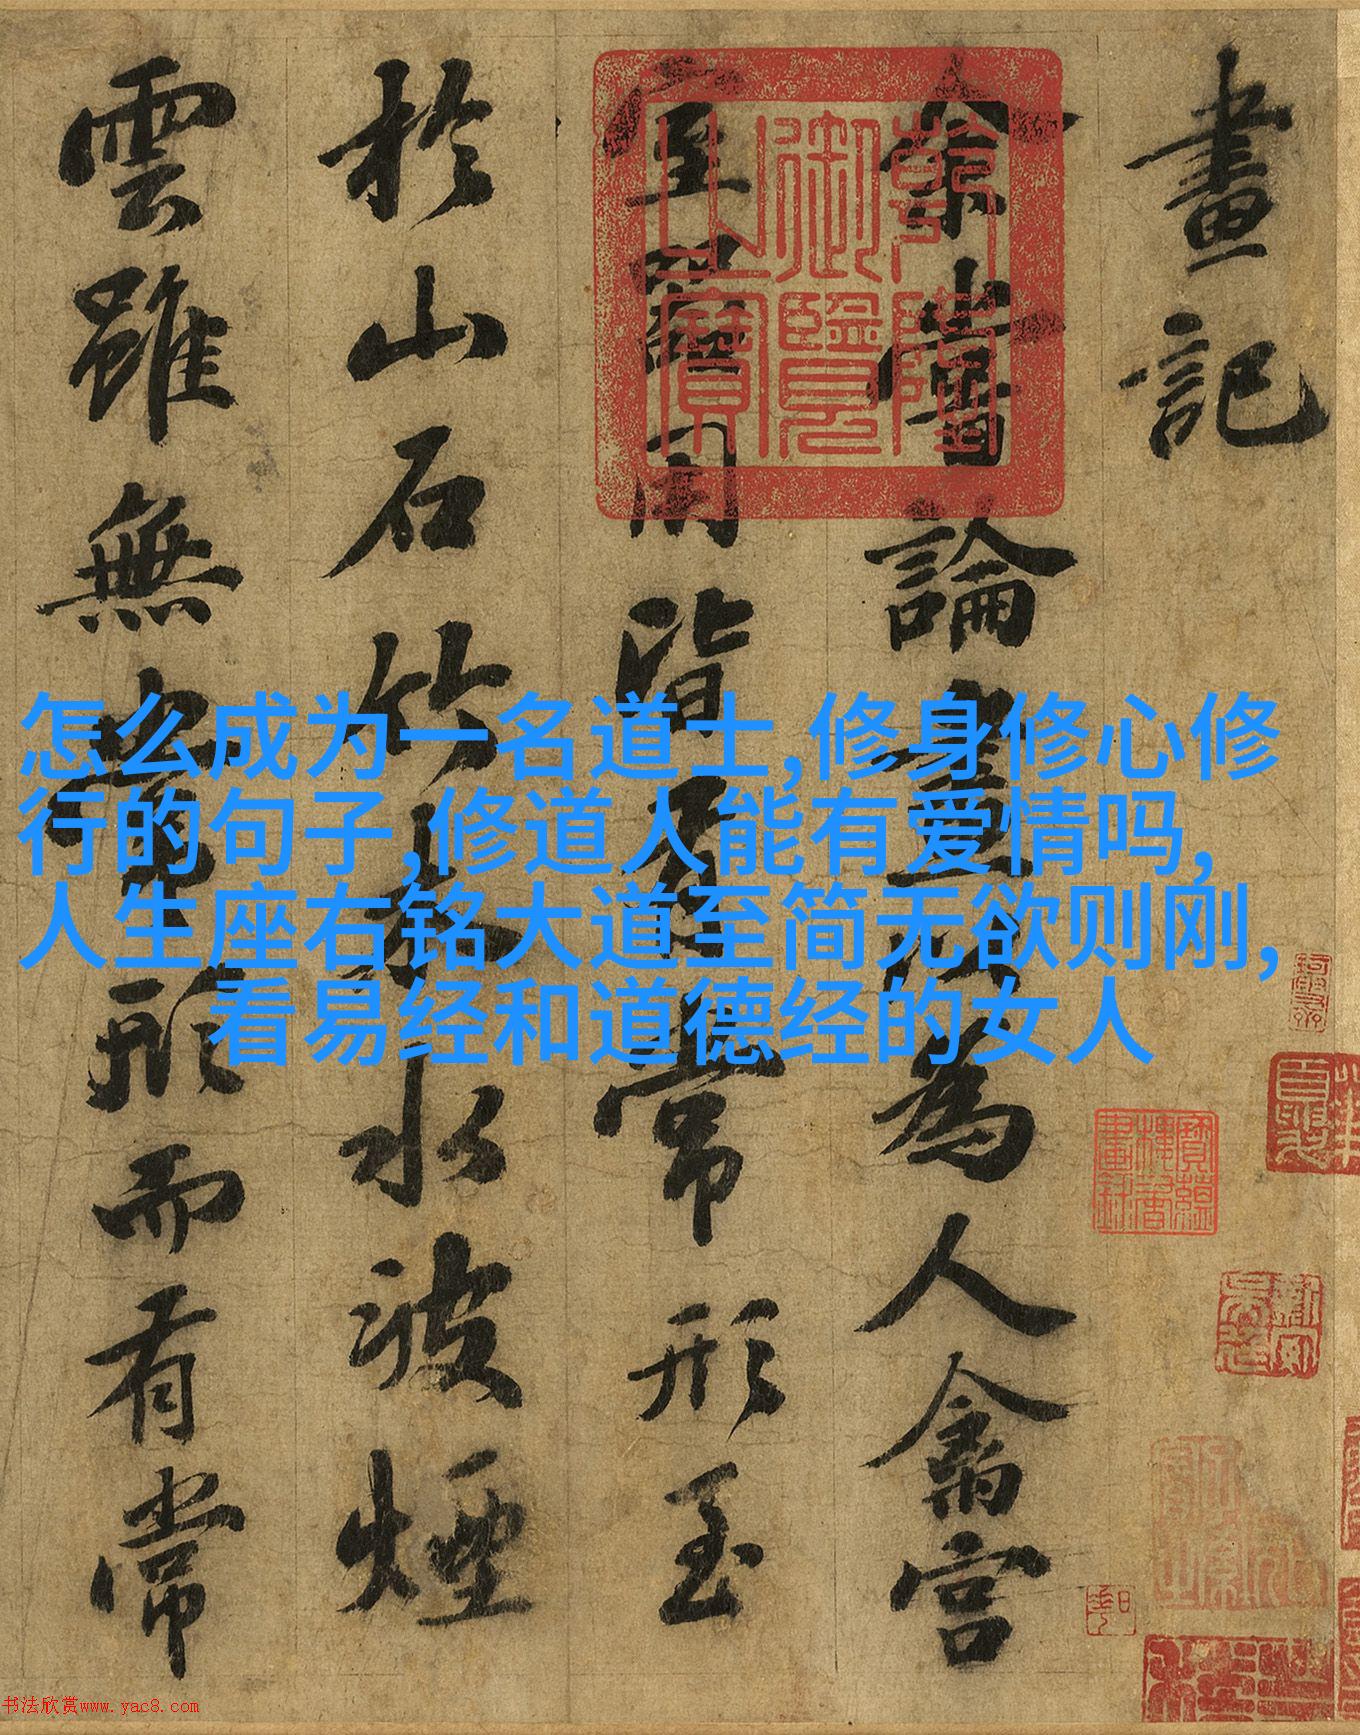 畫記
余嘗論畫以為人禽宮
室器用皆有常形至
於山石竹木水波煙
雲雖無常形而有常
乾隆
御覽
之寶
怎么成为一名道士,修身修心修
行的句子,修道人能有爱情吗,
人生座右铭大道至简无欲则刚,
看易经和道德经的女人
书法欣赏www.yac8.com